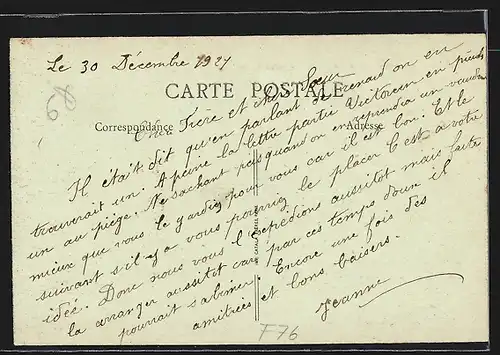 Le 30 Décembre 1921
68
CARTE POSTALE
Correspondance
Adresse
Cher Frère et chère Sœur
Il était dit qu'en parlant de renard on en
trouverait un. A peine la lettre partie Victorien en
un au piège. Ne sachant pas quand on en reprendra un vaudra
mieux que vous le gardiez pour vous car il est bon. Et le
suivant s'il y a vous pourriez le placer C'est à votre
idée. Donc nous vous l'expédions aussitot mais faite
la arranger aussitot car par ces temps doux il
pourrait s'abimer Encore une fois des
amitiées et bons baisers.
Jeanne
F76